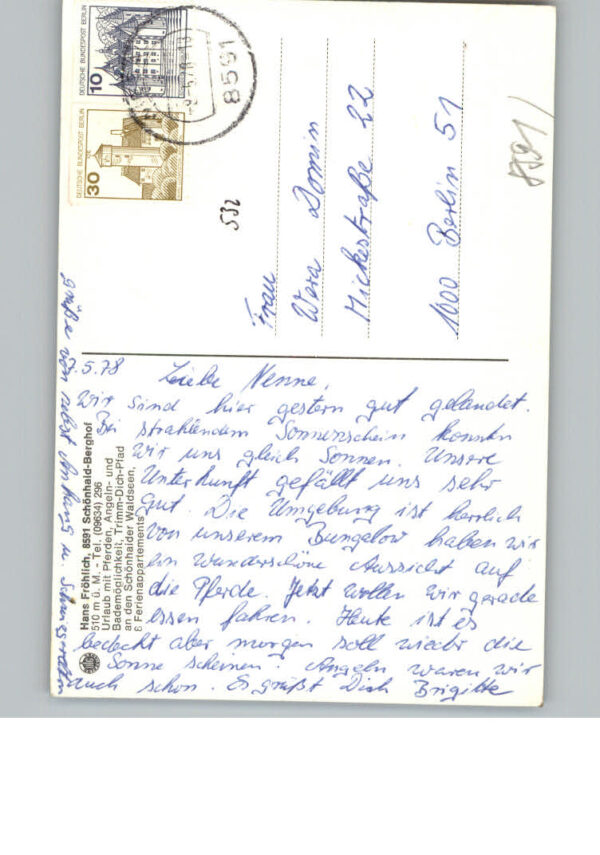 DEUTSCHE BUNDESPOST BERLIN
10
DEUTSCHE BUNDESPOST BERLIN
30
8591
532
8591/
Frau
Wera Domin
Mickestraße 22
1000 Berlin 51
.5.78
Liebe Nenne,
Wir sind hier gestern gut gelandet.
Bei strahlendem Sonnenschein konnten
wir uns gleich Sonnen. Unsere
Unterkunft gefällt uns sehr
gut. Die Umgebung ist herrlich
von unserem Bungelow haben wir
ein wunderschöne Aussicht auf
die Pferde. Jetzt wollen wir gerade
essen fahren. Heute ist es
bedeckt aber morgen soll wieder die
Sonne scheinen. Angeln waren wir
auch schon. Es grüßt Dich Brigitte
Grüße von nebst Anhang u.
Hans Fröhlich, 8591 Schönhaid-Berghof
510 m ü. M. - Tel. (09634) 296
Urlaub mit Pferden, Angeln- und
Bademöglichkeit, Trimm-Dich-Pfad
an den Schönhaider Waldseen,
8 Ferienappartements